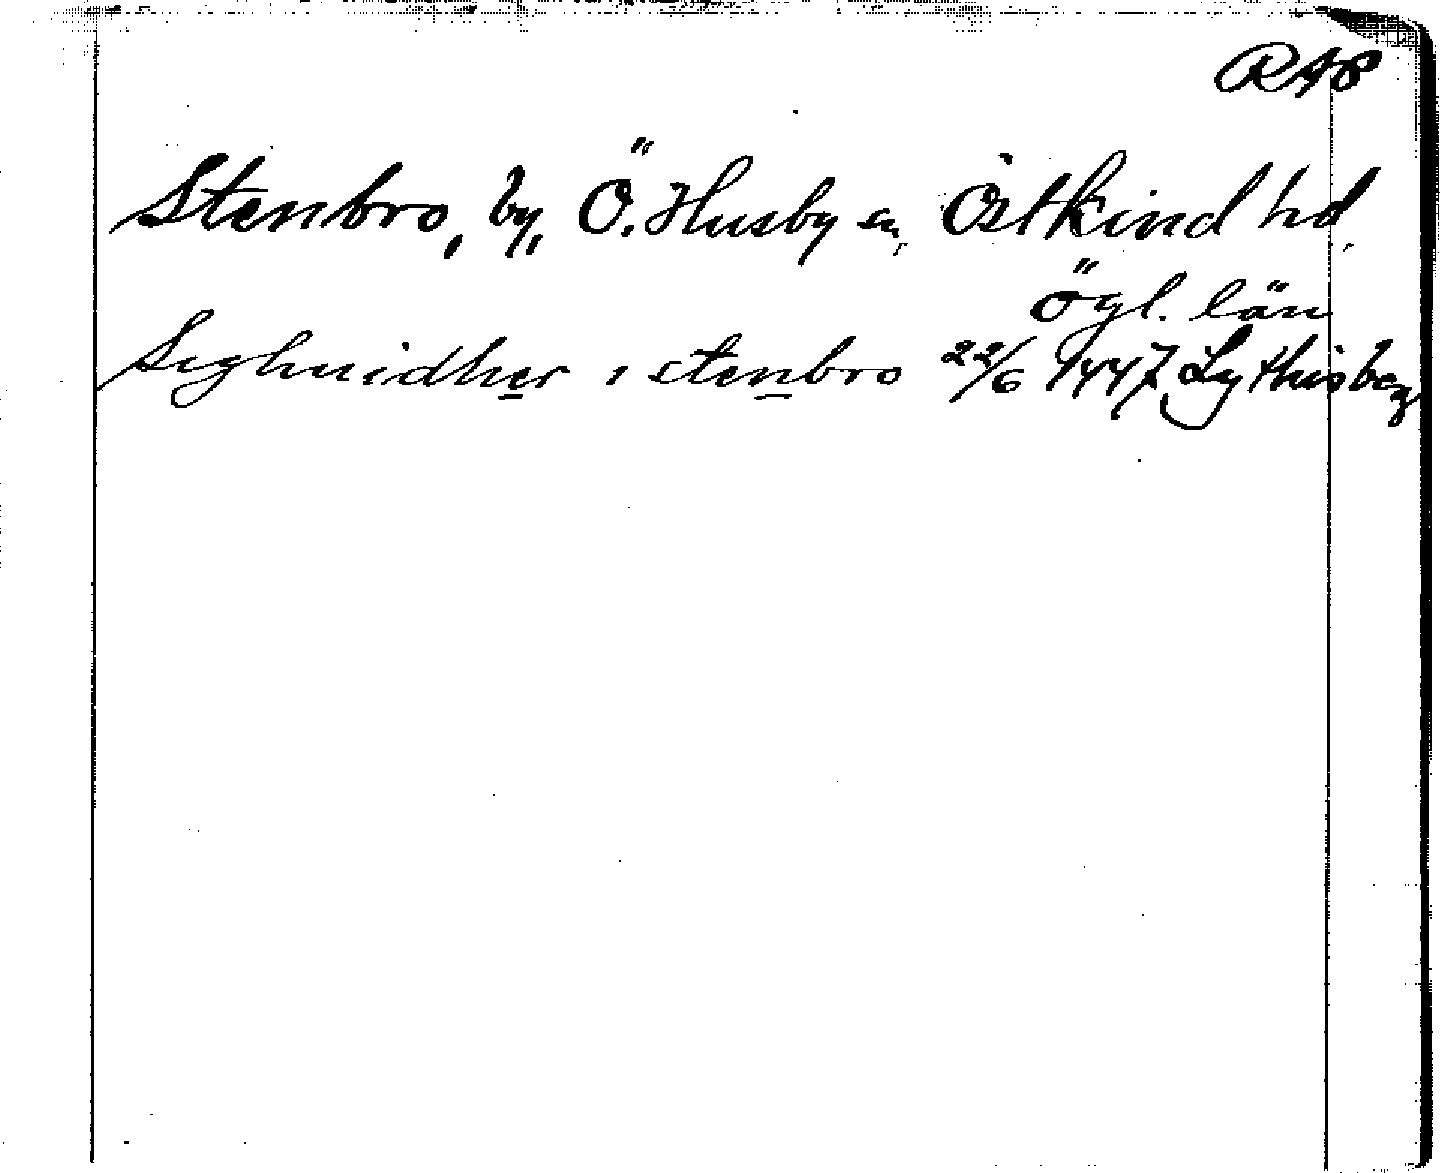 RAP
Stenbro, by, Ö. Husby sn, Östkind hd,
Ögl. län
Sighuidher i stenbro 22/6 1447 Lythisberg